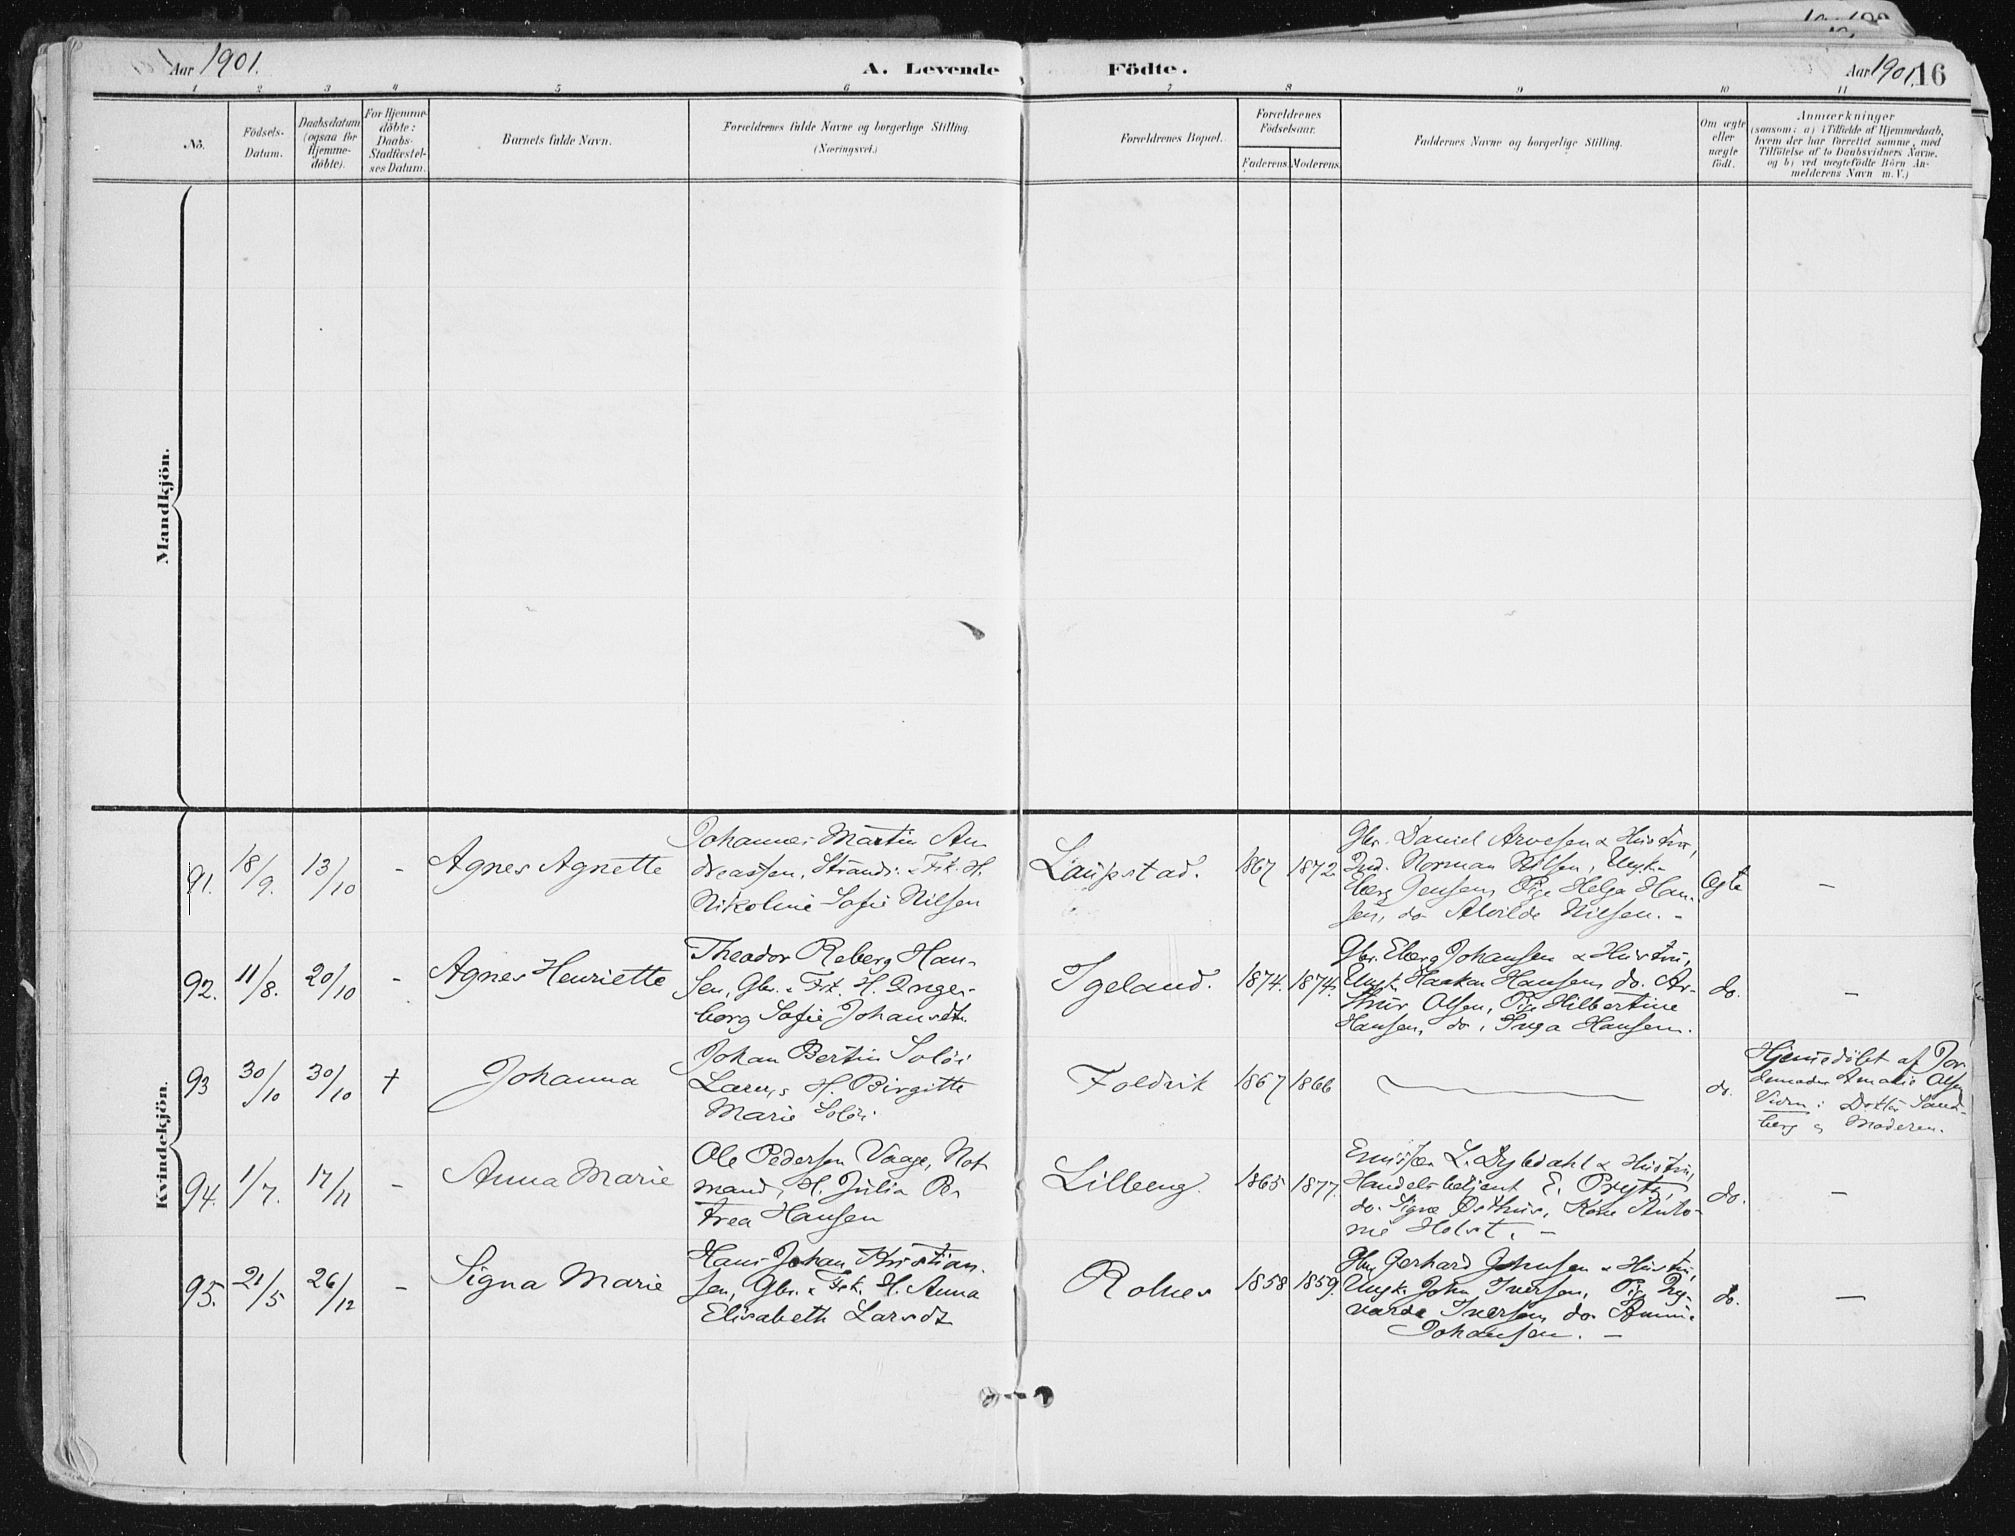 Aar 1901.
A. Levende Födte.
Aar 1901. 16
1 2 3 4 5 6 7 8 9 10 11
No.
Födsels-
Datum.
Daabsdatum
(ogsaa for
Hjemme-
döbte).
For Hjemme-
döbte:
Daabs-
Stadfæstel-
ses Datum.
Barnets fulde Navn.
Forældrenes fulde Navne og borgerlige Stilling.
(Næringsvei.)
Forældrenes Bopæl.
Forældrenes
Födselsaar.
Faderens. Moderens.
Faddernes Navne og borgerlige Stilling.
Om ægte
eller
uægte
født.
Anmærkninger
(saasom: a) i Tilfælde af Hjemmedaab,
hvem der har forrettet samme, med
Tilföielse af to Daabsvidners Navne.
og b) ved uægtefödte Börn An-
melderens Navn m. V.)
Mandkjön.
Kvindekjön.
91.
18/9.
13/10
-
Agnes Agnette
Johannes Martin An-
dreassen, Strands. & Fisk. H.
Nikoline Sofie Nilsen
Laupstad.
1867
1872.
Gbr. Daniel Arnesen & Hustru,
Ind. Norman Nilsen, Ungk.
Eberg Jensen, Pige Helga Han-
sen, do Alvilde Nilsen. -
Ægte
-
92.
11/8.
20/10
-
Agnes Henriette
Theodor Reberg Han-
sen, Gbr. & Fisk. H. Inge-
borg Sofie Johansdt.
Igeland.
1874.
1874.
Gbr. Eberg Johansen & Hustru,
Ungk. Haakon Hansen, do. Ar-
thur Olsen, Pige Hilbertine
Hansen, do, Inga Hansen.
do.
-
93
30/10
30/10
+
Johanna
Johan Bertin Solöi
H. Birgitte
Marie Solöi
Foldvik
1867
1866
do.
Hjemmedöbt af Jor-
demoder Amalie Olsen
Vidn: Doktor Sand-
berg og Moderen.
94.
1/7.
17/11
-
Anna Marie
Ole Pedersen Vaage, Not-
mand, H. Julia Pe-
trea Hansen
Lilleeng.
1865
1877.
L. Dybdahl & Hustru,
Handelsbetjent E.
do. Signe Kone Anto-
nie Holst. -
do.
-
95.
21/5
26/12
-
Signa Marie
Hans Johan Kristian-
sen, Gbr. & Fisk. H. Anna
Elisabeth Larsdt
Rolnes
1858
1859.
Gbr Gerhard Johnsen & Hustru,
Ungk. John Iversen, Pige
Iversen, do.
Johansen. -
do.
-